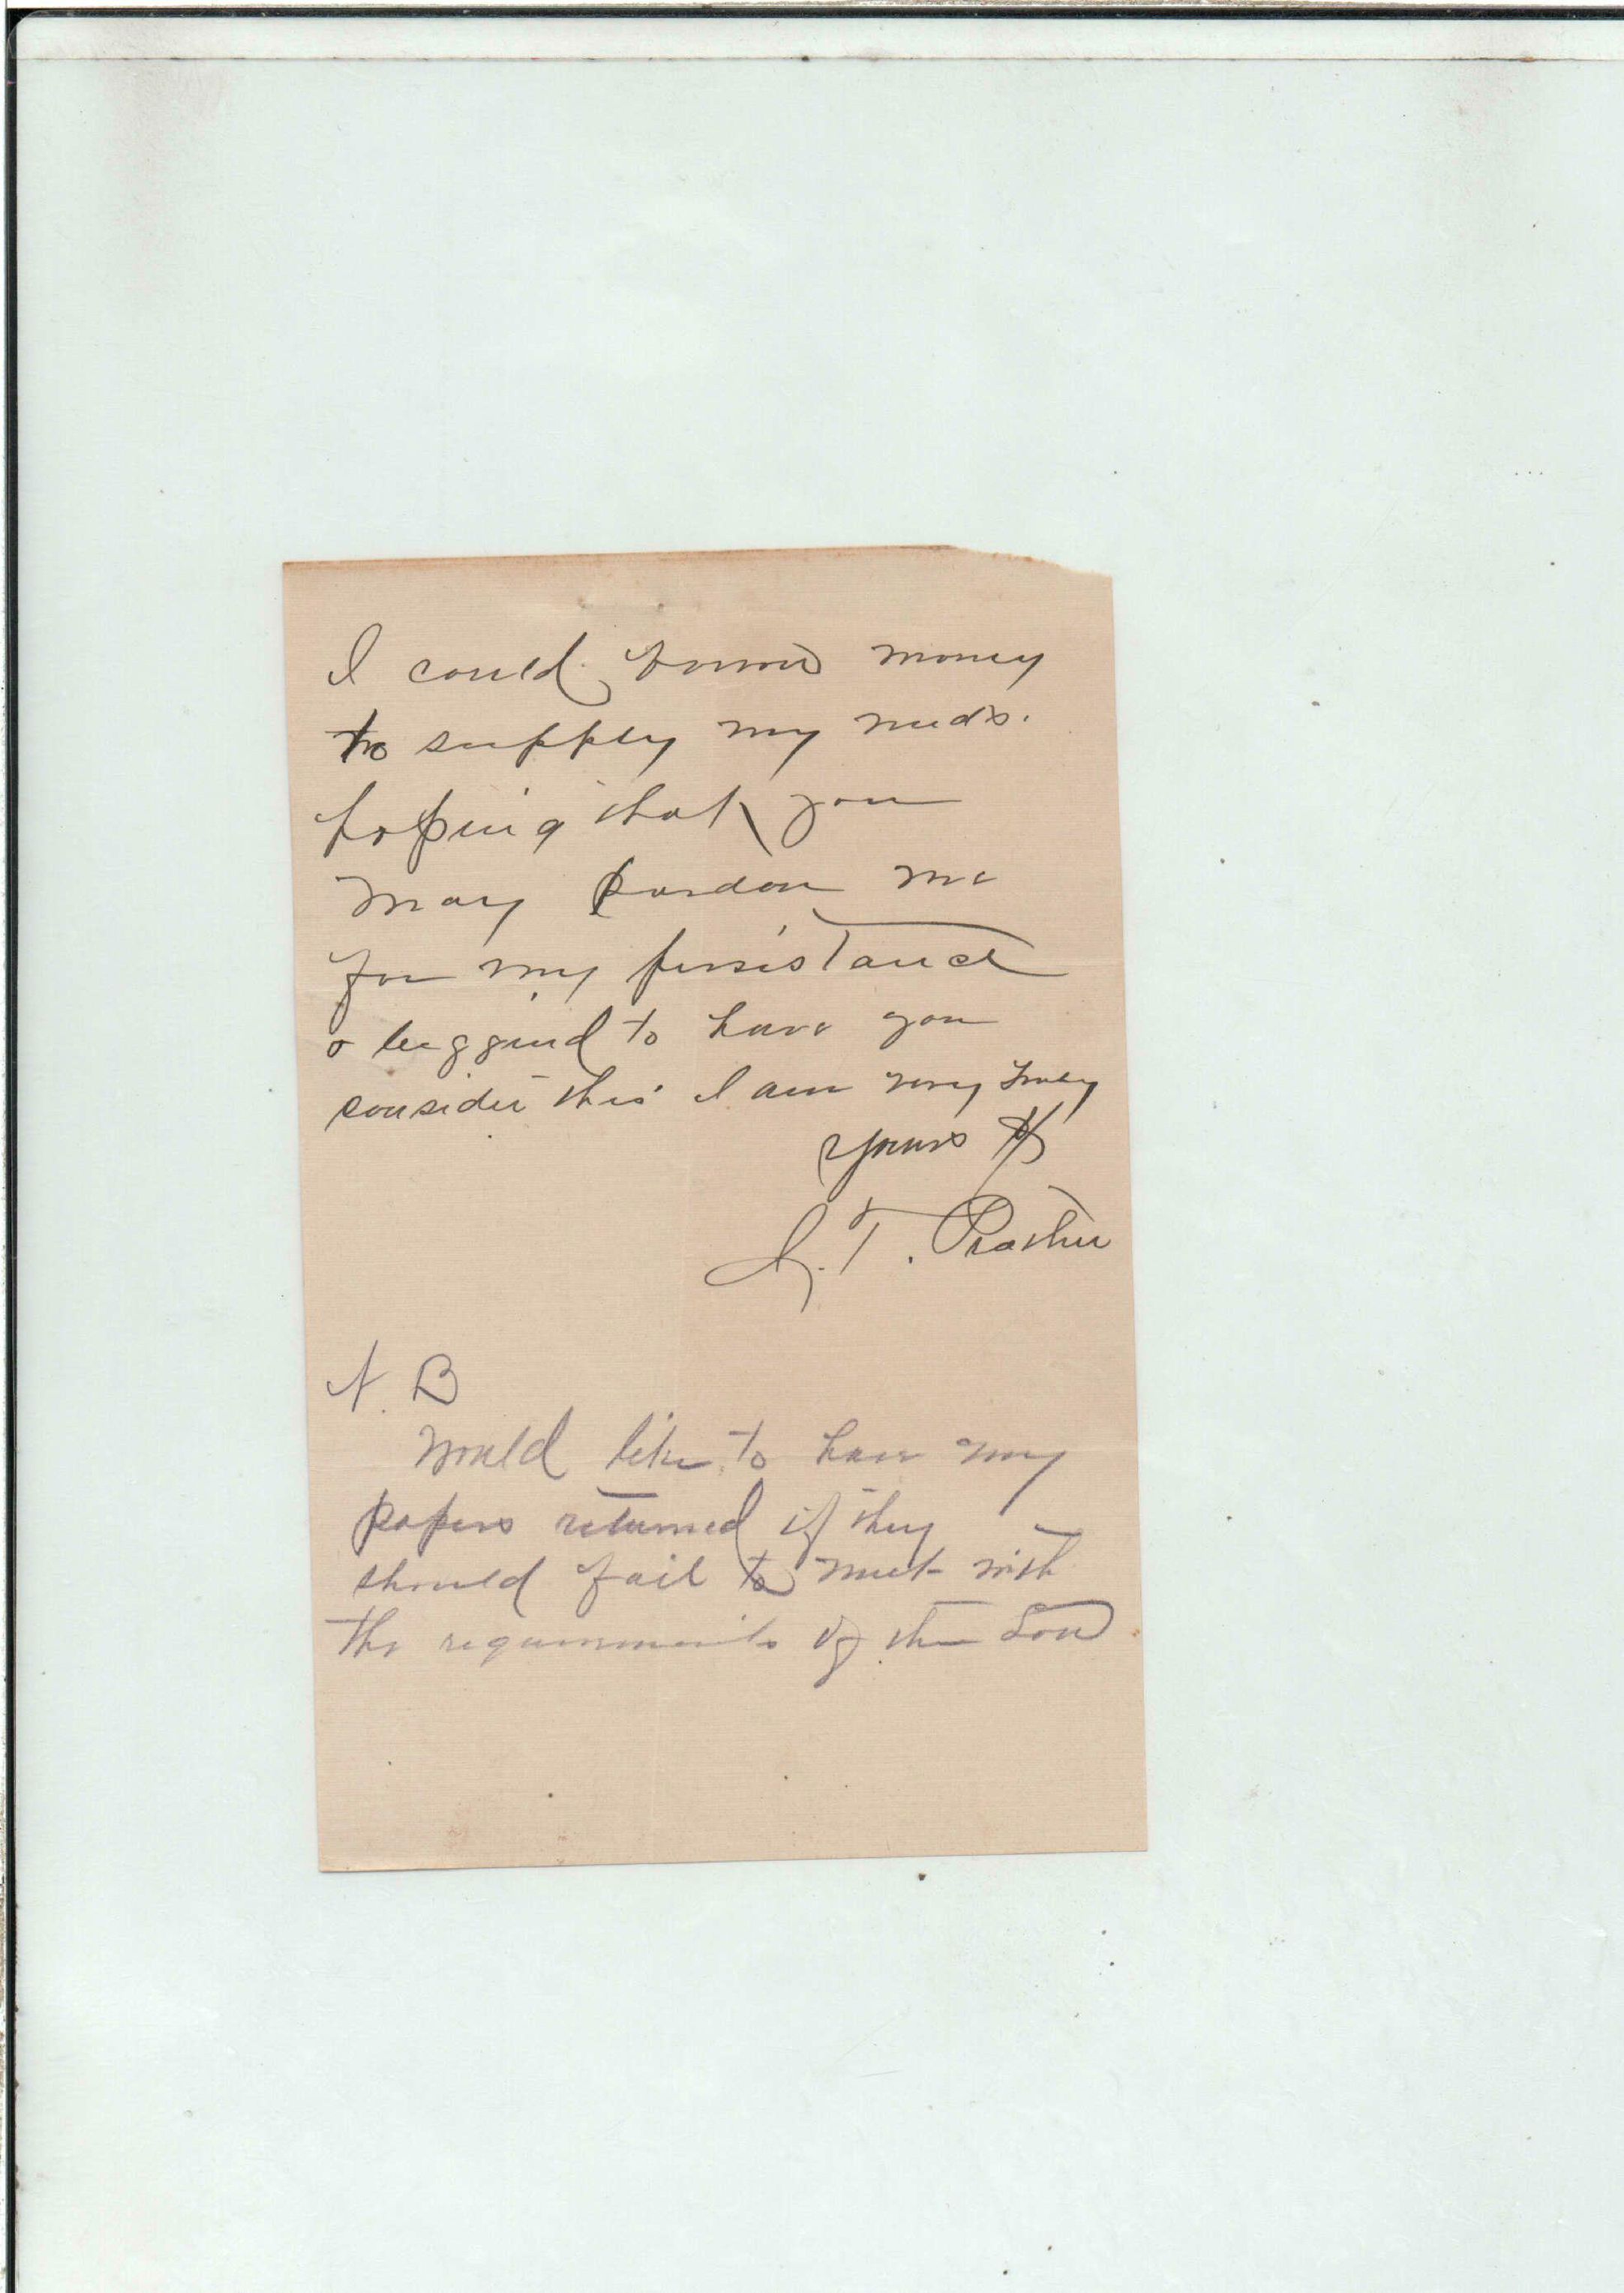 I could borrow money
to supply my needs.
hoping that you
may pardon me
for my persistance
& begging to have you
consider this I am very truly
yours
T. Prather
N. B
Would like to have my
papers returned if they
should fail to meet with
the requirements of the Law